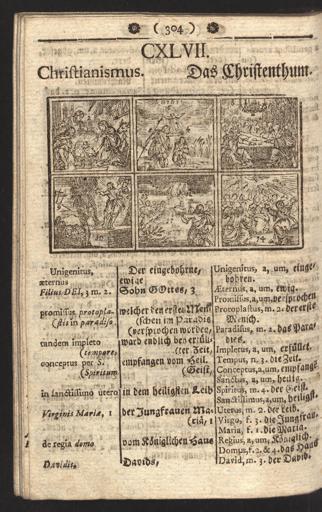 ( 304 )
CXLVII.
Christianismus. Das Christenthum.
Unigenitus,
æternus
Filius DEI, 3 m. 2.
promissus protopla-
stis in paradiso
tandem impleto
tempore,
conceptus per S.
Spiritum
in sanctissimo utero
Virginis Mariæ, 1
de regia domo
Davidis,
Der eingebohrne,
ewige
Sohn GOttes, 3
welcher den ersten Men-
schen im Paradis
versprochen worden,
ward endlich bey erfül-
ter Zeit,
empfangen vom Heil.
Geist,
in dem heiligsten Leib
der Jungfrauen Ma-
riä, 1
vom Königlichen Haus
Davids,
Unigenitus, a, um, einge-
bohren.
Æternus, a, um, ewig.
Promissus, a, um, versprochen
Protoplastus, m. 2. der erste
Mensch.
Paradisus, m. 2. das Para-
dies.
Impletus, a, um, erfüllet.
Tempus, n. 3. die Zeit.
Conceptus, a, um, empfange
Sanctus, a, um, heilig.
Spiritus, m. 4. der Geist.
Sanctissimus, a, um, heiligst.
Uterus, m. 2. der Leib.
Virgo, f. 3. die Jungfrau.
Maria, f. 1. die Maria.
Regius, a, um, Königlich.
Domus, f. 2. & 4. das Haus
David, m. 3. der David.